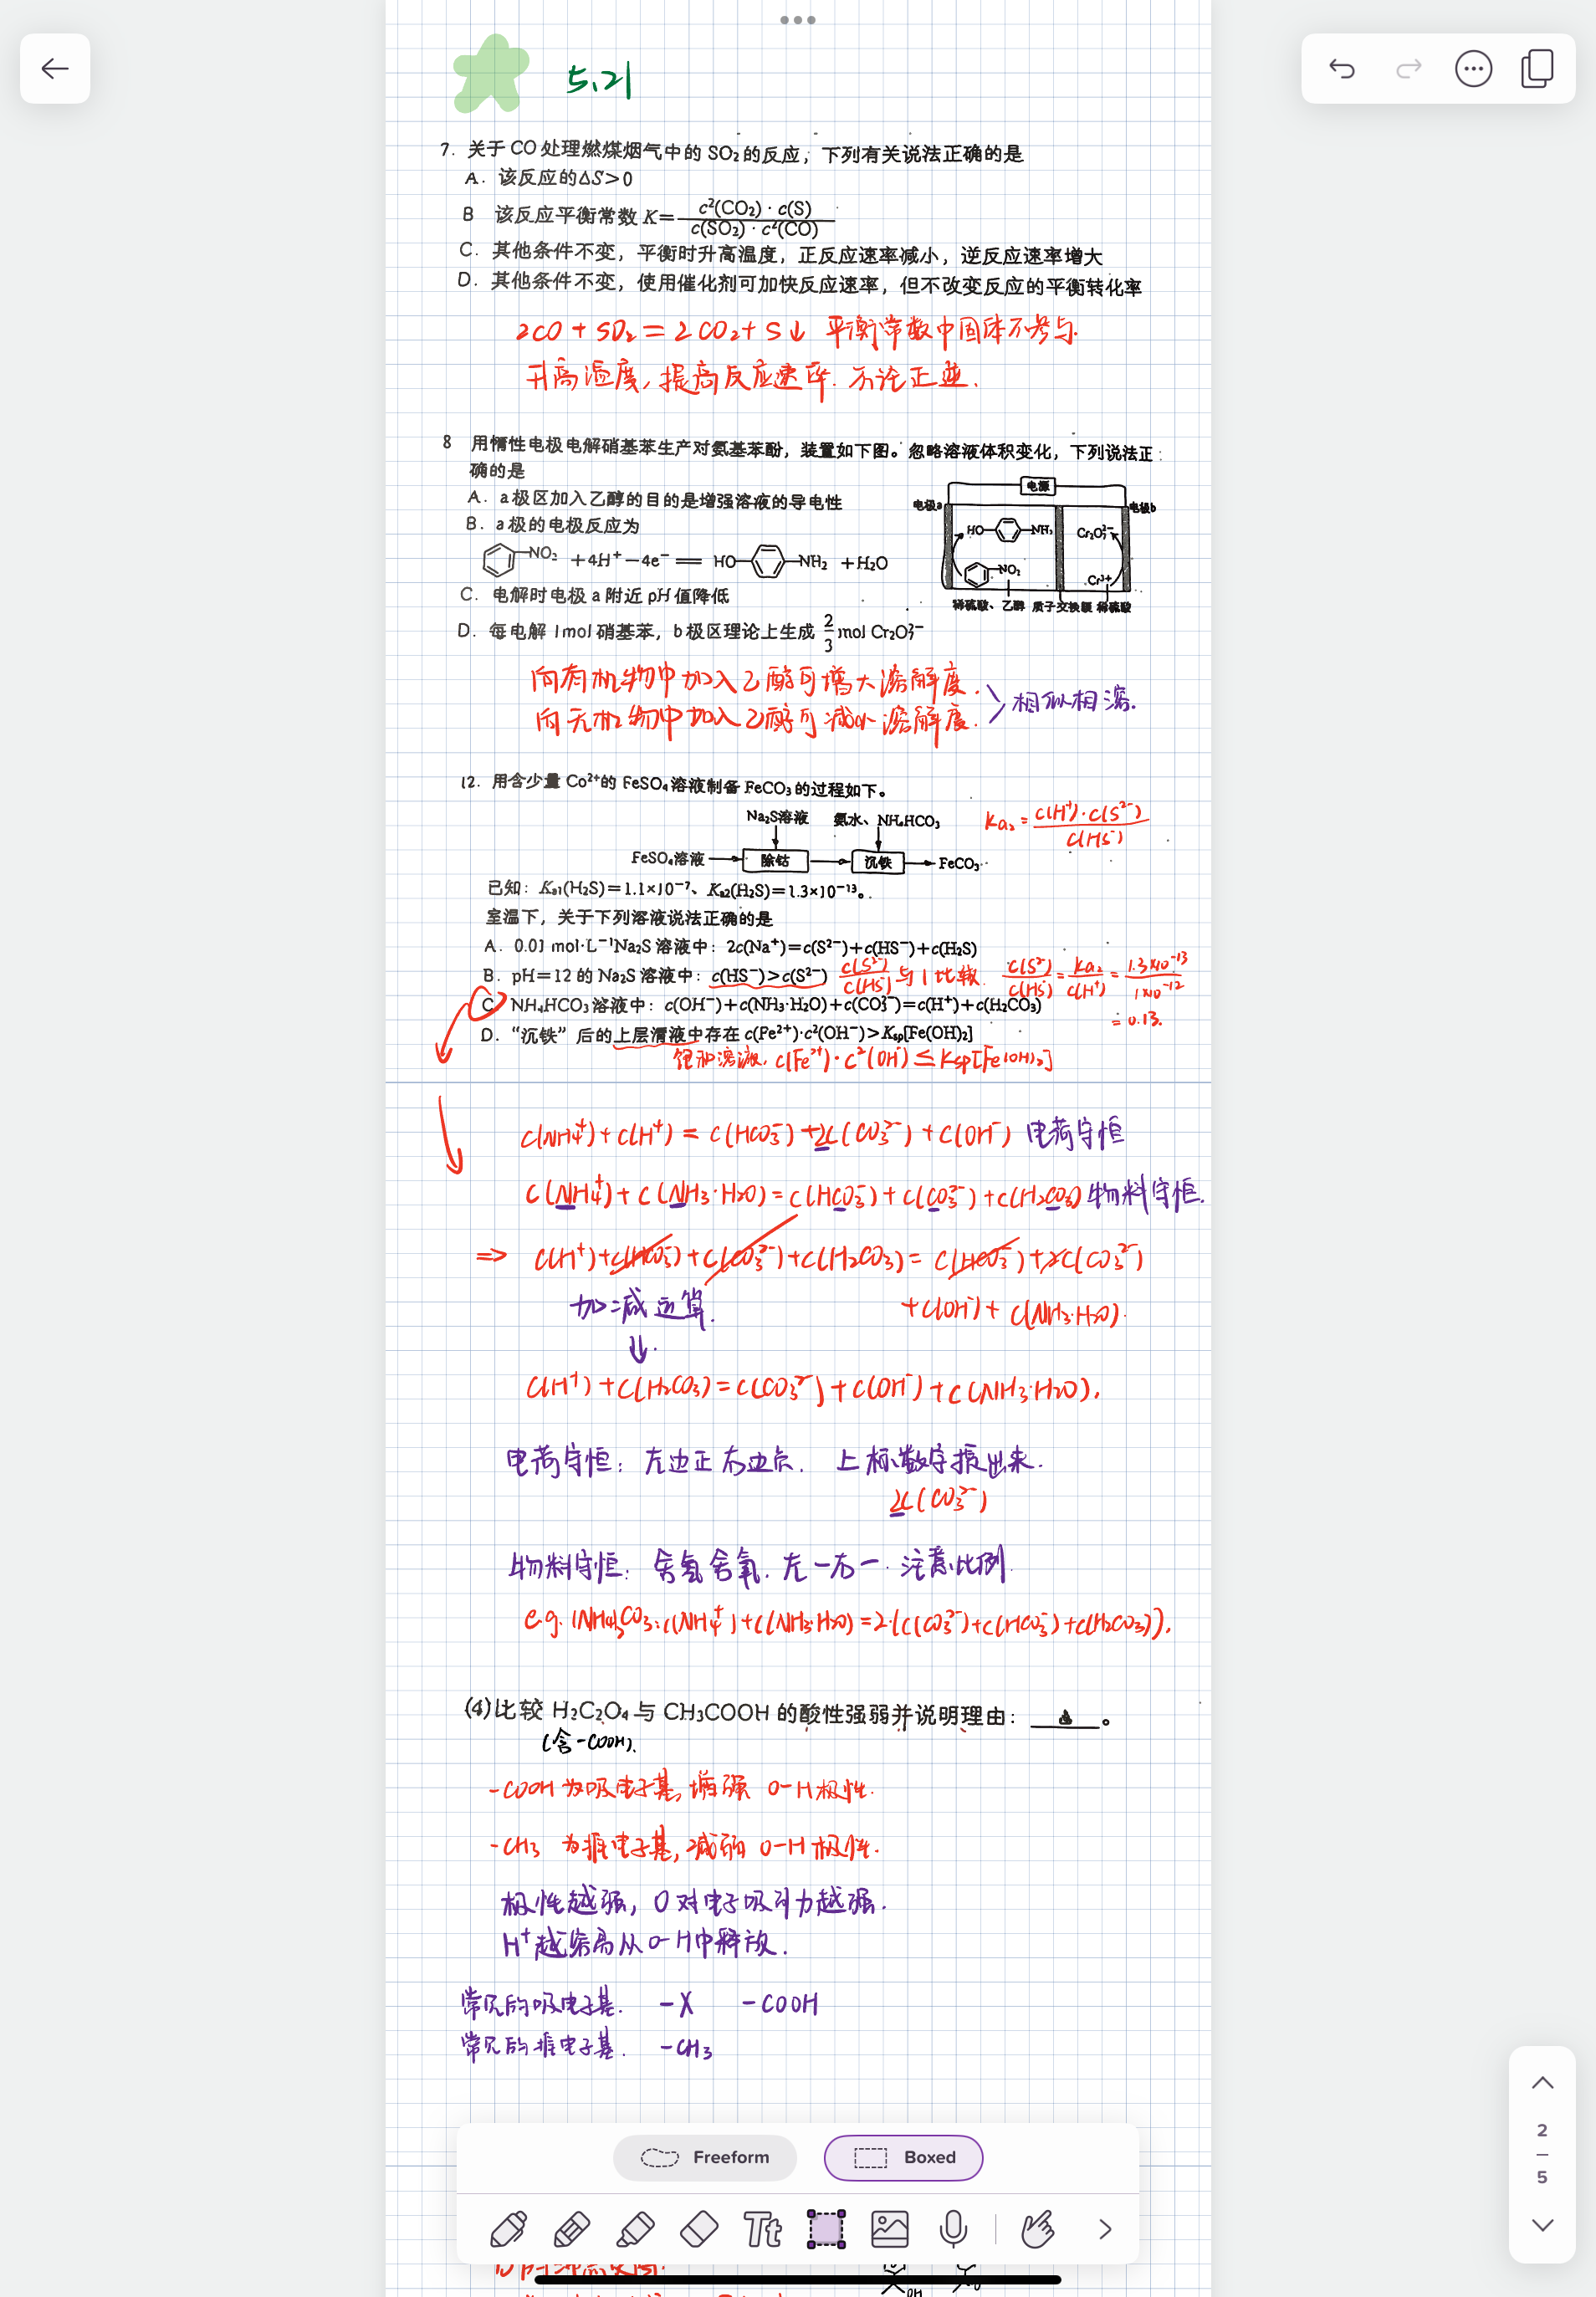 5.21
7. 关于 CO 处理燃煤烟气中的 SO₂ 的反应，下列有关说法正确的是
A. 该反应的ΔS>0
B 该反应平衡常数 K= c²(CO₂)·c(S) / c(SO₂)·c²(CO)
C. 其他条件不变，平衡时升高温度，正反应速率减小，逆反应速率增大
D. 其他条件不变，使用催化剂可加快反应速率，但不改变反应的平衡转化率
2CO + SO₂ = 2CO₂ + S↓ 平衡常数中固体不参与.
升高温度, 提高反应速率. 不论正逆.
8 用惰性电极电解硝基苯生产对氨基苯酚，装置如下图。忽略溶液体积变化，下列说法正
确的是
A. a 极区加入乙醇的目的是增强溶液的导电性
B. a 极的电极反应为
NO₂ +4H⁺−4e⁻ == HO NH₂ +H₂O
C. 电解时电极 a 附近 pH 值降低
D. 每电解 1mol 硝基苯，b 极区理论上生成 2/3 mol Cr₂O₇²⁻
电源
电极a 电极b
HO NH₂ Cr₂O₇²⁻
NO₂ Cr³⁺
稀硫酸、乙醇 质子交换膜 稀硫酸
向有机物中加入乙醇可增大溶解度.
向无机物中加入乙醇可减小溶解度.
相似相溶.
12. 用含少量 Co²⁺的 FeSO₄ 溶液制备 FeCO₃ 的过程如下。
Na₂S溶液 氨水、NH₄HCO₃
FeSO₄溶液 除钴 沉铁 FeCO₃
Ka₂ = c(H⁺)·c(S²⁻) / c(HS⁻)
已知：Kₐ₁(H₂S)=1.1×10⁻⁷、Kₐ₂(H₂S)=1.3×10⁻¹³。
室温下，关于下列溶液说法正确的是
A. 0.01 mol·L⁻¹Na₂S 溶液中：2c(Na⁺)=c(S²⁻)+c(HS⁻)+c(H₂S)
B. pH=12 的 Na₂S 溶液中：c(HS⁻)>c(S²⁻) c(S²⁻)/c(HS⁻) 与 1 比较. c(S²⁻)/c(HS⁻) = Ka₂/c(H⁺) = 1.3×10⁻¹³/1×10⁻¹²
= 0.13.
C. NH₄HCO₃ 溶液中：c(OH⁻)+c(NH₃·H₂O)+c(CO₃²⁻)=c(H⁺)+c(H₂CO₃)
D. “沉铁”后的上层清液中存在 c(Fe²⁺)·c²(OH⁻)>Kₛₚ[Fe(OH)₂]
饱和溶液, c(Fe²⁺)·c²(OH⁻) ≤ Ksp[Fe(OH)₂]
c(NH₄⁺)+c(H⁺) = c(HCO₃⁻)+2c(CO₃²⁻)+c(OH⁻) 电荷守恒
c(NH₄⁺)+c(NH₃·H₂O)=c(HCO₃⁻)+c(CO₃²⁻)+c(H₂CO₃) 物料守恒.
=> c(H⁺)+c(HCO₃⁻)+c(CO₃²⁻)+c(H₂CO₃)= c(HCO₃⁻)+2c(CO₃²⁻)
+c(OH⁻)+ c(NH₃·H₂O).
加减运算.
↓.
c(H⁺)+c(H₂CO₃)=c(CO₃²⁻)+c(OH⁻)+c(NH₃·H₂O).
电荷守恒: 左边正右边负. 上标数字提出来.
2c(CO₃²⁻)
物料守恒: 含氮含氧. 左一右一. 注意比例.
e.g. (NH₄)₂CO₃: c(NH₄⁺)+c(NH₃·H₂O)=2·(c(CO₃²⁻)+c(HCO₃⁻)+c(H₂CO₃)).
(4)比较 H₂C₂O₄ 与 CH₃COOH 的酸性强弱并说明理由：▲。
(含-COOH).
-COOH 为吸电子基, 增强 O-H 极性.
-CH₃ 为推电子基, 减弱 O-H 极性.
极性越强, O 对电子吸引力越强.
H⁺越容易从O-H中释放.
常见的吸电子基. -X -COOH
常见的推电子基. -CH₃
Freeform Boxed
Tt
2
5
OH